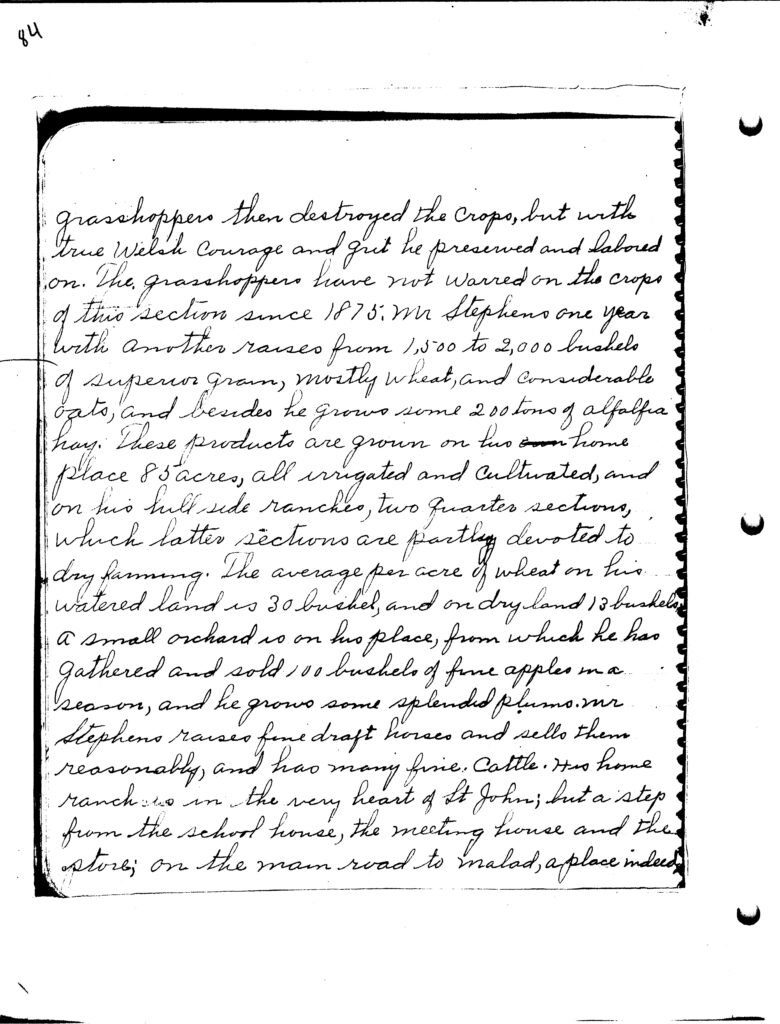 84
grasshoppers then destroyed the crops, but with
true Welsh Courage and grit he preserved and labored
on. The grasshoppers have not warred on the crops
of this section since 1875. Mr Stephens one year
with another raises from 1,500 to 2,000 bushels
of superior grain, mostly wheat, and considerable
oats, and besides he grows some 200 tons of alfalfia
hay. These products are grown on his home
place 85 acres, all irrigated and cultivated, and
on his hill side ranches, two quarter sections,
which latter sections are partly devoted to
dry farming. The average per acre of wheat on his
watered land is 30 bushel, and on dry land 13 bushels.
A small orchard is on his place, from which he has
gathered and sold 100 bushels of fine apples in a
season, and he grows some splendid plums. Mr
Stephens raises fine draft horses and sells them
reasonably, and has many fine. Cattle. His home
ranch is in the very heart of St John; but a step
from the school house, the meeting house and the
store; on the main road to Malad, a place indeed,